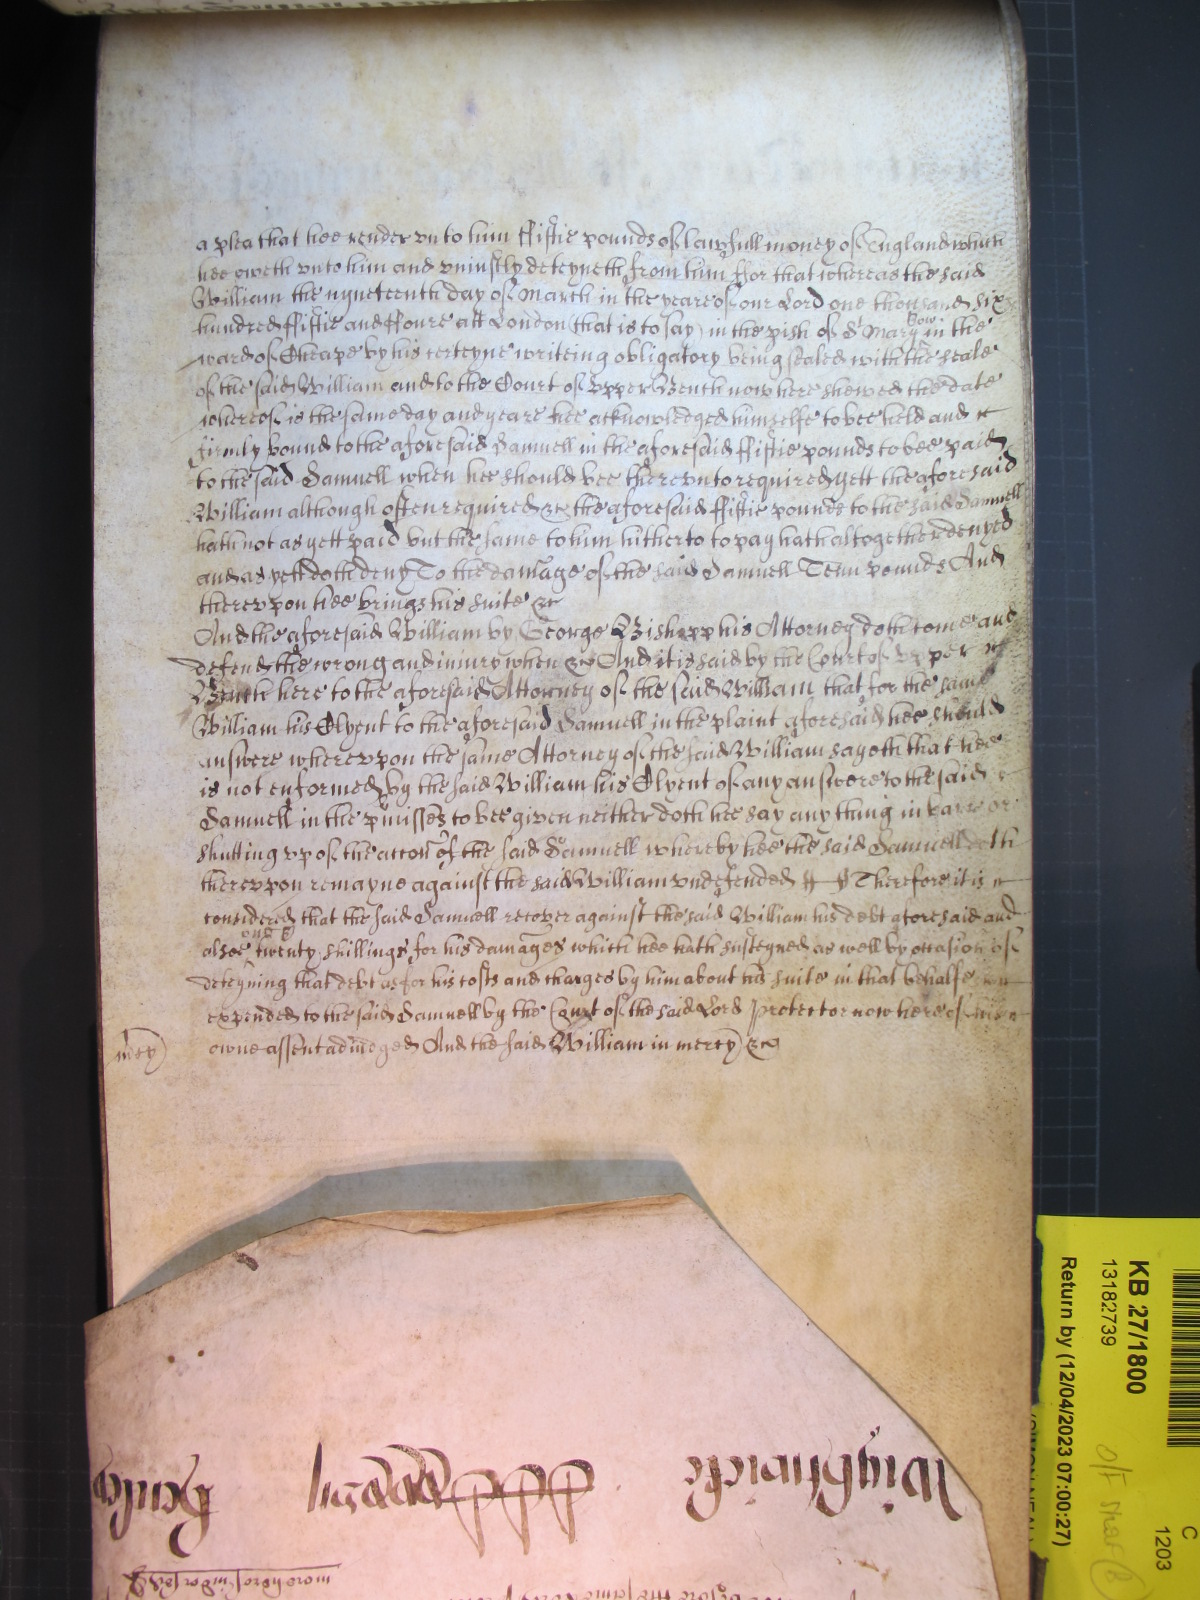 a plea that hee render vnto him ffiftie pounds of lawfull money of England which
hee oweth vnto him and vniustly deteyneth from him ffor that whereas the said
William the nyneteenth day of March in the yeare of our Lord one thousand six
hundred ffiftie and ffoure att London (that is to say) in the pish of St Mary Bow in the
ward of Cheape by his certeyne writeing obligatory being sealed with the seale
of the said William and to the Court of vpper Bench now here shewed the date
whereof is the same day and yeare hee acknowledged himselfe to bee held and
firmly bound to the aforesaid Samuell in the aforesaid ffiftie pounds to bee paid
to the said Samuell when hee should bee therevnto required yett the aforesaid
William although often required &c the aforesaid ffiftie pounds to the said Samuell
hath not as yett paid but the same to him hitherto to pay hath altogether denyed
and as yett doth deny To the damage of the said Samuell Tenn pounds And
therevpon hee brings his suite &c
And the aforesaid William by George Bishopp his Attorney doth come and
defend the wrong and iniury when &c And it is said by the Court of vpper
Bench here to the aforesaid Attorney of the said William that for the same
William his Clyent to the aforesaid Samuell in the plaint aforesaid hee should
answere wherevpon the same Attorney of the said William sayeth that hee
is not enformed by the said William his Clyent of any answere to the said
Samuell in the pmisses to bee given neither doth hee say any thing in barr or
shutting vp of the accon of the said Samuell whereby hee the said Samuell doth
therevpon remayne against the said William vndefended Therefore it is
considered that the said Samuell recover against the said William his debt aforesaid and
alsoe twenty one shillings for his damages which hee hath susteyned as well by occasion of
deteyning that debt as for his costs and charges by him about his suite in that behalfe
expended to the said Samuell by the Court of the said Lord Protector now here of his
owne assent adiudged And the said William in mercy &c
mcy
KB 27/1800
13182739
Return by (12/04/2023 07:00:27)
C
1203